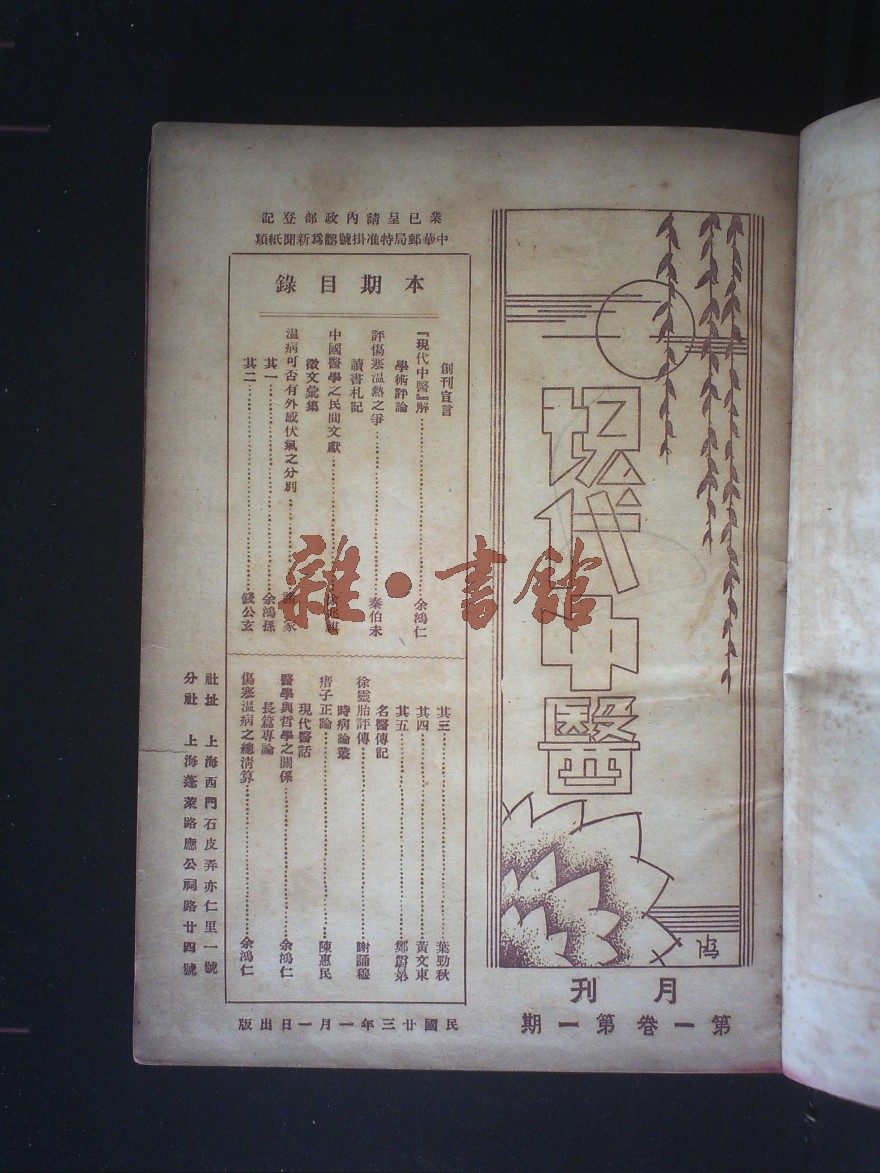 現代中醫
月刊
第一卷第一期
業已呈請內政部登記
中華郵局特准掛號認爲新聞紙類
本期目錄
創刊宣言
『現代中醫』解……余鴻仁
學術評論
評傷寒溫熱之爭……秦伯未
讀書札記
中國醫學之民間文獻……
徵文彙集
溫病可否有外感伏氣之分別……
其一……余鴻孫
其二……錢公玄
其三……葉勁秋
其四……黃文東
其五……
名醫傳記
徐靈胎評傳……謝誦穆
時病論叢
痦子正論……陳惠民
現代醫話
醫學與哲學之關係……余鴻仁
長篇專論
傷寒溫病之總清算……余鴻仁
社址 上海西門石皮弄亦仁里一號
分社 上海蓬萊路應公祠路廿四號
民國廿三年一月一日出版
雜·書館